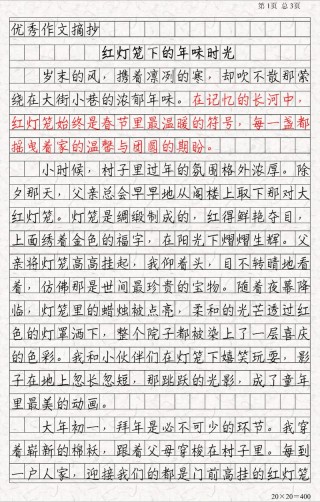 第1页 总3页
优秀作文摘抄
红灯笼下的年味时光
岁末的风，携着凛冽的寒，却吹不散那萦
绕在大街小巷的浓郁年味。在记忆的长河中，
红灯笼始终是春节里最温暖的符号，每一盏都
摇曳着家的温馨与团圆的期盼。
小时候，村子里过年的氛围格外浓厚。除
夕那天，父亲总会早早地从阁楼上取下那对大
红灯笼。灯笼是绸缎制成的，红得鲜艳夺目，
上面绣着金色的福字，在阳光下熠熠生辉。父
亲将灯笼高高挂起，我仰着头，目不转睛地看
着，仿佛那是世间最珍贵的宝物。随着夜幕降
临，灯笼里的蜡烛被点亮，柔和的光芒透过红
色的灯罩洒下，整个院子都被染上了一层喜庆
的色彩。我和小伙伴们在灯笼下嬉笑玩耍，影
子在地上忽长忽短，那跳跃的光影，成了童年
里最美的动画。
大年初一，拜年是必不可少的环节。我穿
着崭新的棉袄，跟着父母穿梭在村子里。每到
一户人家，迎接我们的都是门前高挂的红灯笼
20×20=400